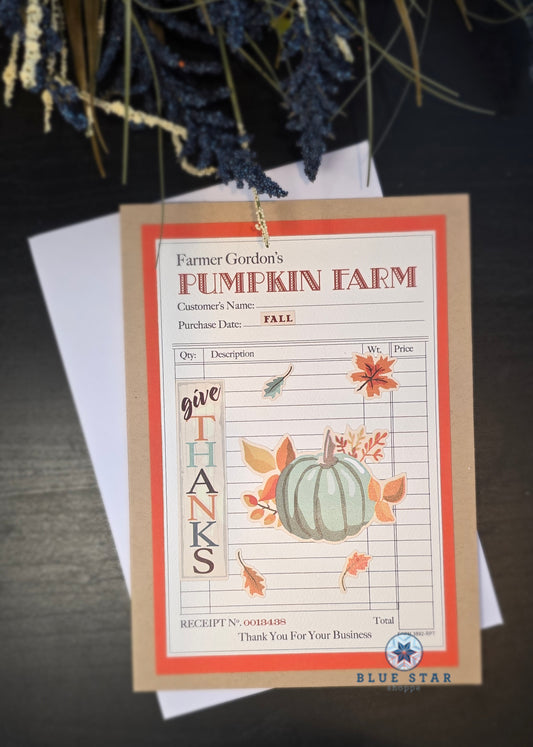 Farmer Gordon's
PUMPKIN FARM
Customer's Name:
Purchase Date: FALL
Qty: Description Wt. Price
give
THANKS
RECEIPT Nº. 0013438 Total
Thank You For Your Business
BLUE STAR
shoppe